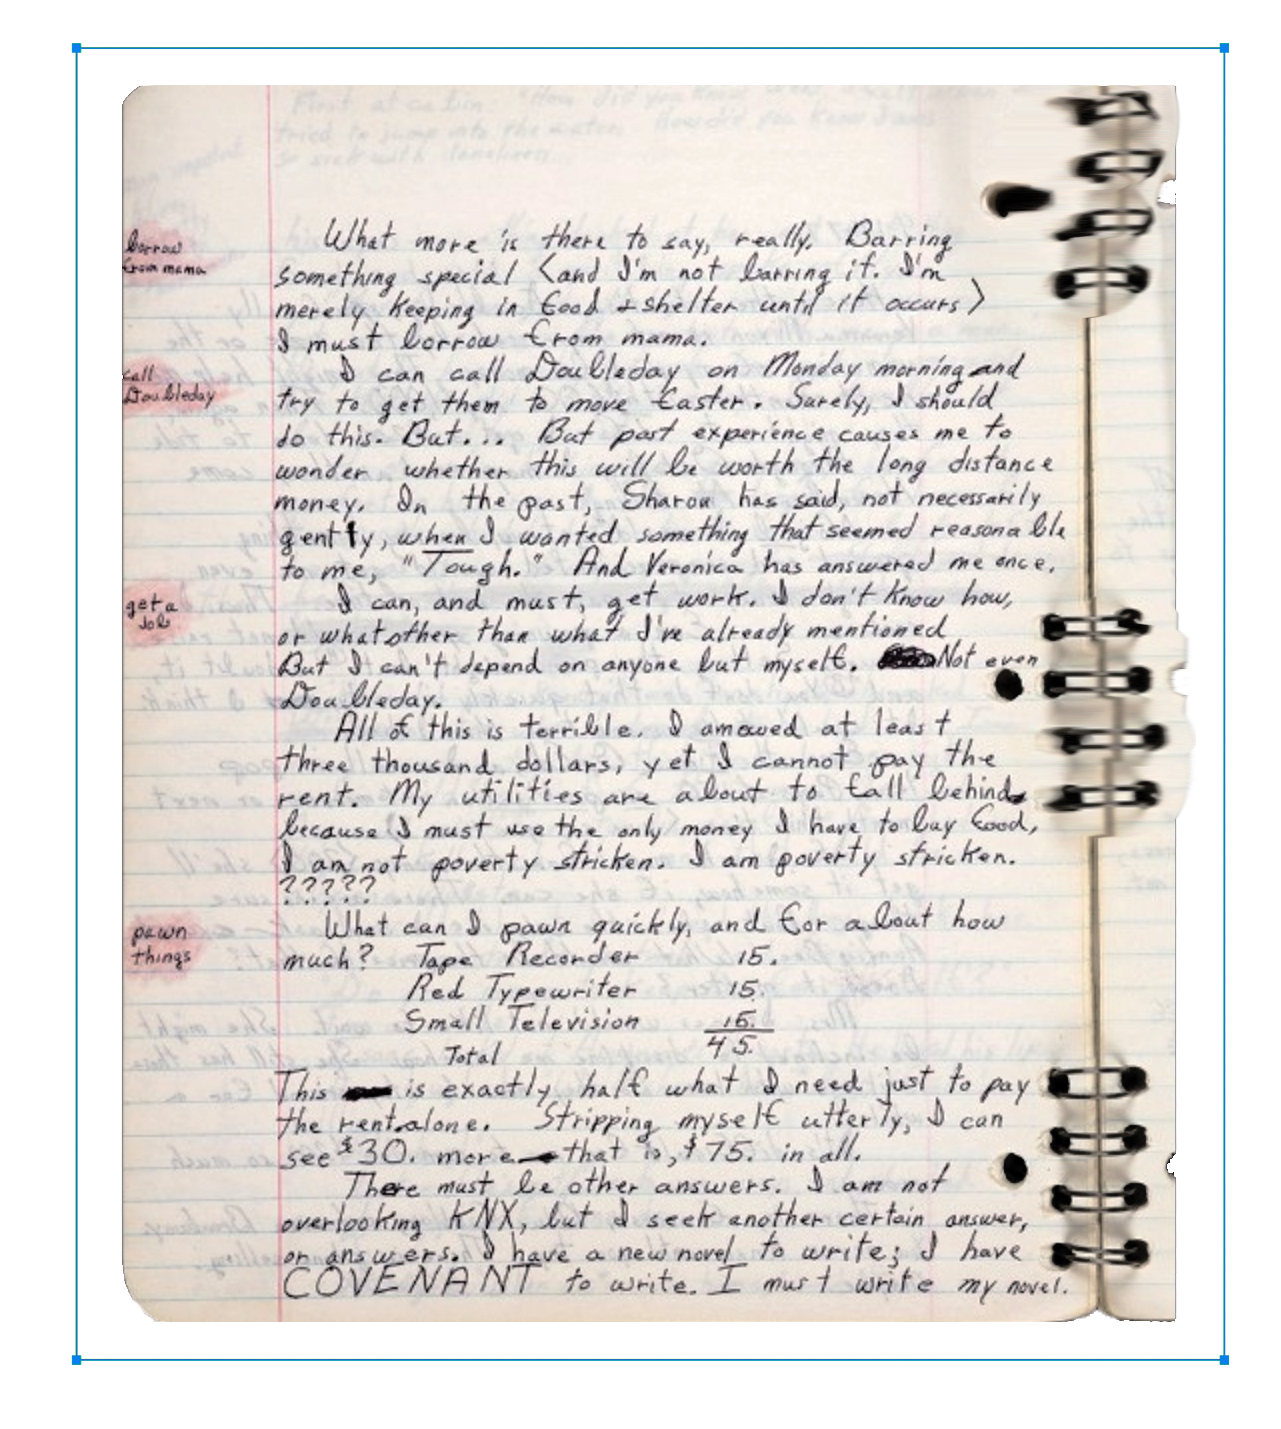 What more is there to say, really. Barring
borrow
from mama
something special (and I'm not barring it. I'm
merely keeping in food + shelter until it occurs)
I must borrow from mama.
call
Doubleday
I can call Doubleday on Monday morning and
try to get them to move faster. Surely, I should
do this. But... But past experience causes me to
wonder whether this will be worth the long distance
money. In the past, Sharon has said, not necessarily
gently, when I wanted something that seemed reasonable
to me, "Tough." And Veronica has answered me once.
get a
job
I can, and must, get work. I don't know how,
or what other than what I've already mentioned
But I can't depend on anyone but myself. Not even
Doubleday.
All of this is terrible. I am owed at least
three thousand dollars, yet I cannot pay the
rent. My utilities are about to fall behind
because I must use the only money I have to buy food,
I am not poverty stricken. I am poverty stricken.
?????
pawn
things
What can I pawn quickly, and for about how
much? Tape Recorder 15.
Red Typewriter 15.
Small Television 15.
Total 45.
This is exactly half what I need just to pay
the rent alone. Stripping myself utterly, I can
see $30. more that is, $75. in all.
There must be other answers. I am not
overlooking KNX, but I seek another certain answer,
or answers. I have a new novel to write; I have
COVENANT to write. I must write my novel.